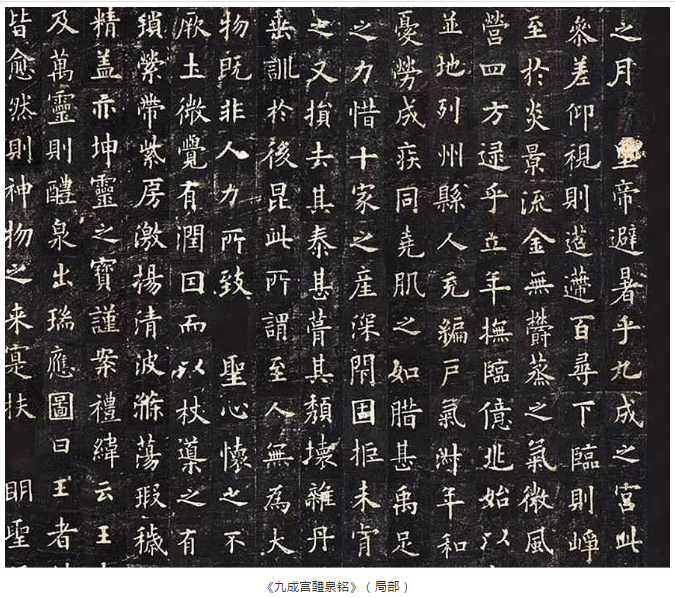 之月 皇帝避暑乎九成之宮此
參差仰視則迢遰百尋下臨則崢
至於炎景流金無鬱蒸之氣微風
營四方逮乎立年撫臨億兆始以
並地列州縣人充編戶氣淑年和
憂勞成疾同堯肌之如腊甚禹足
之力惜十家之產深閇固拒未肯
之又損去其泰甚葺其頹壞雜丹
垂訓於後昆此所謂至人無為大
物既非人力所致 聖心懷之不
厥土微覺有潤因而以杖導之有
鎖縈帶紫房激揚清波滌蕩瑕穢
精盖亦坤靈之寶謹案禮緯云王
及萬靈則醴泉出瑞應圖曰王者
皆愈然則神物之来寔扶 明聖
《九成宫醴泉铭》（局部）